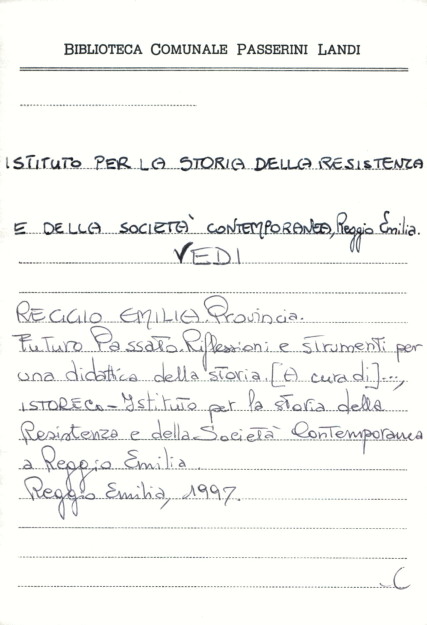 BIBLIOTECA COMUNALE PASSERINI LANDI
ISTITUTO PER LA STORIA DELLA RESISTENZA
E DELLA SOCIETÀ CONTEMPORANEA, Reggio Emilia.
VEDI
REGGIO EMILIA. Provincia.
Futuro Passato. Riflessioni e strumenti per
una didattica della storia. [A cura di]...,
ISTORECO - Istituto per la storia della
Resistenza e della Società Contemporanea
a Reggio Emilia.
Reggio Emilia, 1997.